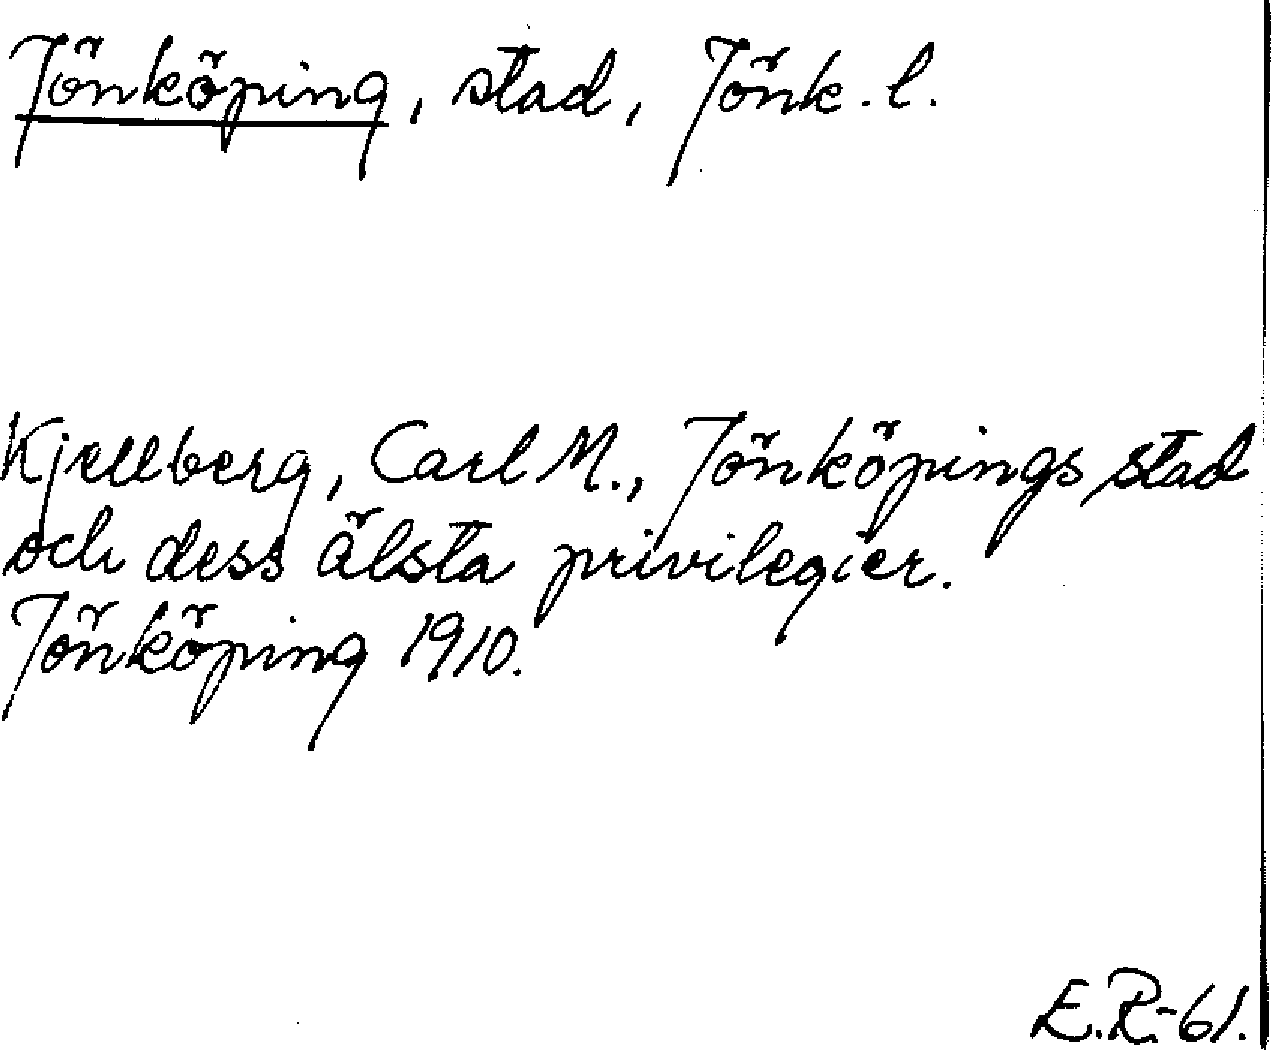 Jönköping, stad, Jönk. l.
Kjellberg, Carl M., Jönköpings stad
och dess älsta privilegier.
Jönköping 1910.
E.R.-61.